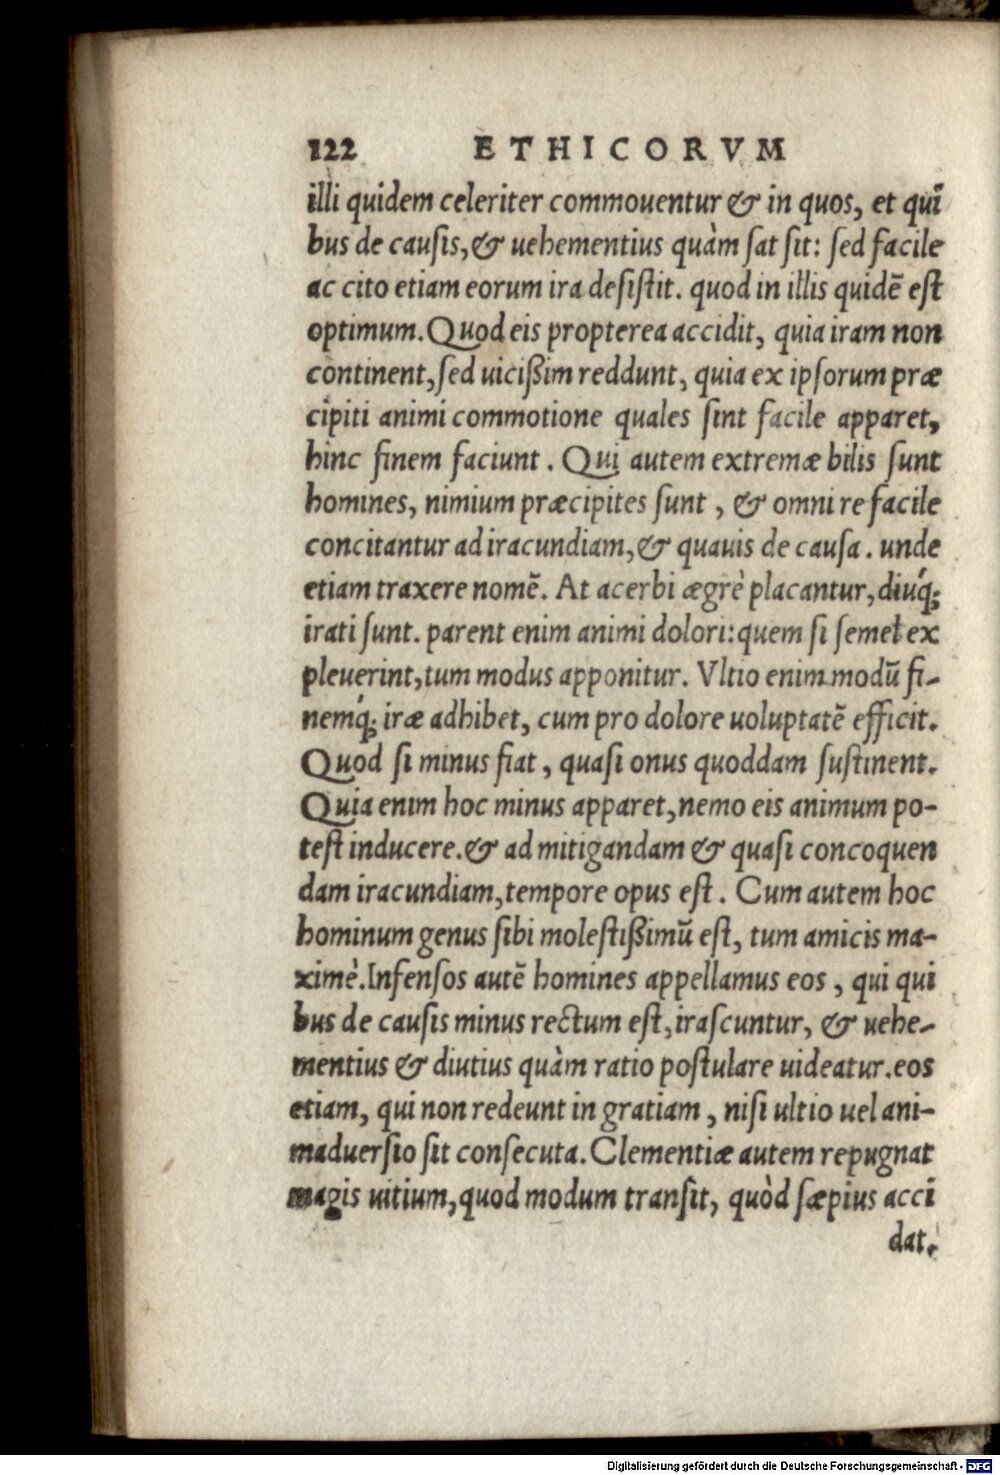 122 ETHICORVM
illi quidem celeriter commouentur & in quos, et quī
bus de causis, & uehementius quàm sat sit: sed facile
ac cito etiam eorum ira desistit. quod in illis quidē est
optimum. Quod eis propterea accidit, quia iram non
continent, sed uicißim reddunt, quia ex ipsorum præ
cipiti animi commotione quales sint facile apparet,
hinc finem faciunt. Qui autem extremæ bilis sunt
homines, nimium præcipites sunt, & omni re facile
concitantur ad iracundiam, & quauis de causa. unde
etiam traxere nomē. At acerbi ægrè placantur, diuq́;
irati sunt. parent enim animi dolori: quem si semel ex
pleuerint, tum modus apponitur. Vltio enim modū fi-
nemq́; iræ adhibet, cum pro dolore uoluptatē efficit.
Quod si minus fiat, quasi onus quoddam sustinent.
Quia enim hoc minus apparet, nemo eis animum po-
test inducere. & ad mitigandam & quasi concoquen
dam iracundiam, tempore opus est. Cum autem hoc
hominum genus sibi molestißimū est, tum amicis ma-
ximè. Infensos autē homines appellamus eos, qui qui
bus de causis minus rectum est, irascuntur, & uehe-
mentius & diutius quàm ratio postulare uideatur. eos
etiam, qui non redeunt in gratiam, nisi ultio uel ani-
maduersio sit consecuta. Clementiæ autem repugnat
magis uitium, quod modum transit, quòd sæpius acci
dat.
Digitalisierung gefördert durch die Deutsche Forschungsgemeinschaft - DFG